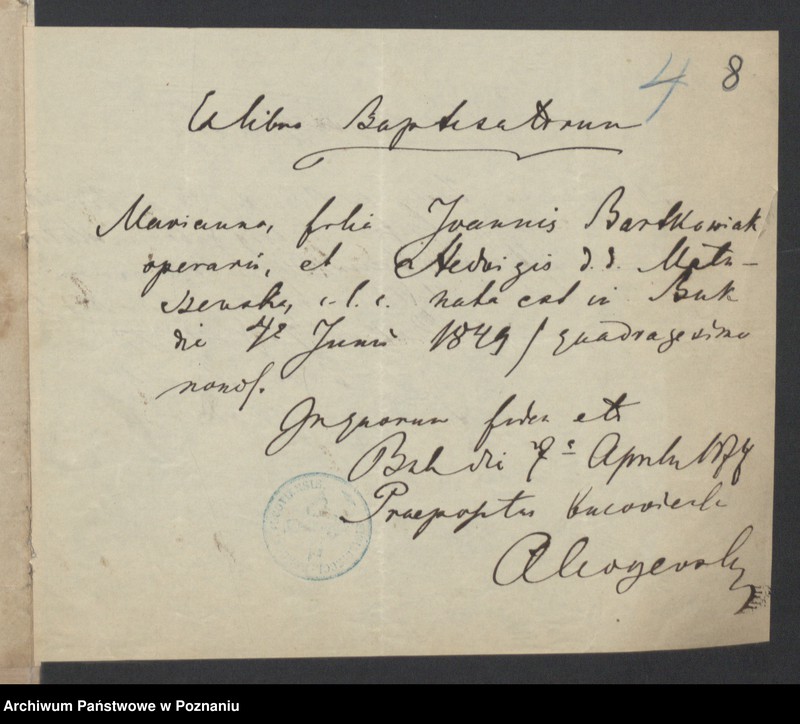 4 8
Ex libro Baptisatorum
Marianna, filia Joannis Bartkowiak
operarii, et Hedvigis d.d. Matu-
szewska, c.l.c. nata est in Buk
die 7ª Junii 1849 / quadragesimo
nono/.
In quorum fidem etc
Buk die 7ª Aprilis
Praepositus
Archiwum Państwowe w Poznaniu